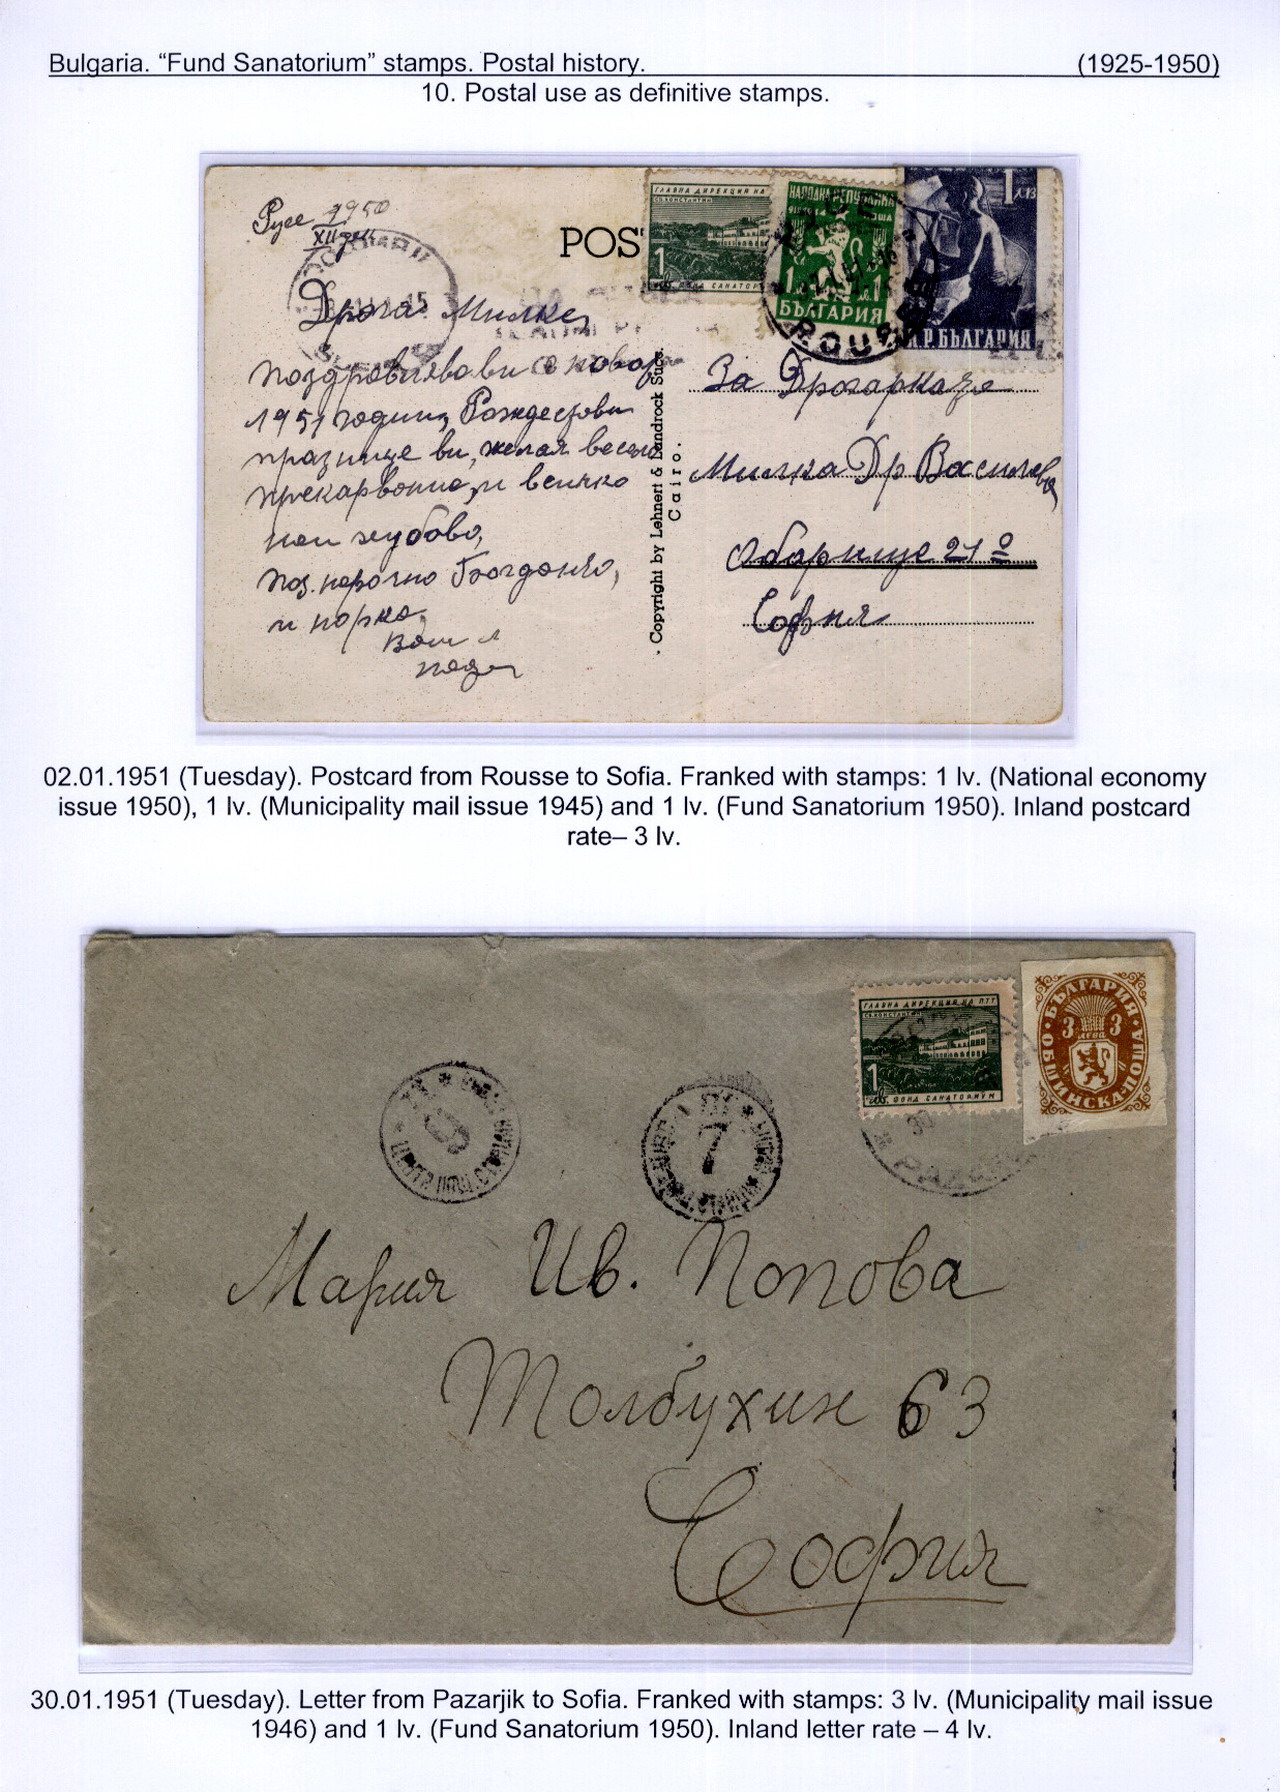 Bulgaria. “Fund Sanatorium” stamps. Postal history. (1925-1950)
10. Postal use as definitive stamps.
Русе 1950
XII
POS
ГЛАВНА ДИРЕКЦИЯ НА
СВ.КОНСТАНТИН
1
ЛВ. ФОНД САНАТОР
НАРОДНА РЕПУБЛИКА
1 1
БЪЛГАРИЯ
ROUSSE
1 ЛЕВ
Н.Р.БЪЛГАРИЯ
Драга Милке,
поздравявави с новата
1951 година, Рождество
празнице ви, желая весело
прекарвание, и всичко
най хубаво,
поз. парочно Богданчо,
и
Ваш
За Другарката
Милка Др Василева
Обарище 21
София
. Copyright by Lehnert & Landrock Succ.
Cairo.
02.01.1951 (Tuesday). Postcard from Rousse to Sofia. Franked with stamps: 1 lv. (National economy
issue 1950), 1 lv. (Municipality mail issue 1945) and 1 lv. (Fund Sanatorium 1950). Inland postcard
rate– 3 lv.
ГЛАВНА ДИРЕКЦИЯ НА ПТТ
СВ.КОНСТАНТИН
1
ЛВ. ФОНД САНАТОРИУМ
БЪЛГАРИЯ
3 3
ЛЕВА
ОБЩИНСКА ПОЩА
7
30
Мария Ив. Попова
Толбухин 63
София
30.01.1951 (Tuesday). Letter from Pazarjik to Sofia. Franked with stamps: 3 lv. (Municipality mail issue
1946) and 1 lv. (Fund Sanatorium 1950). Inland letter rate – 4 lv.